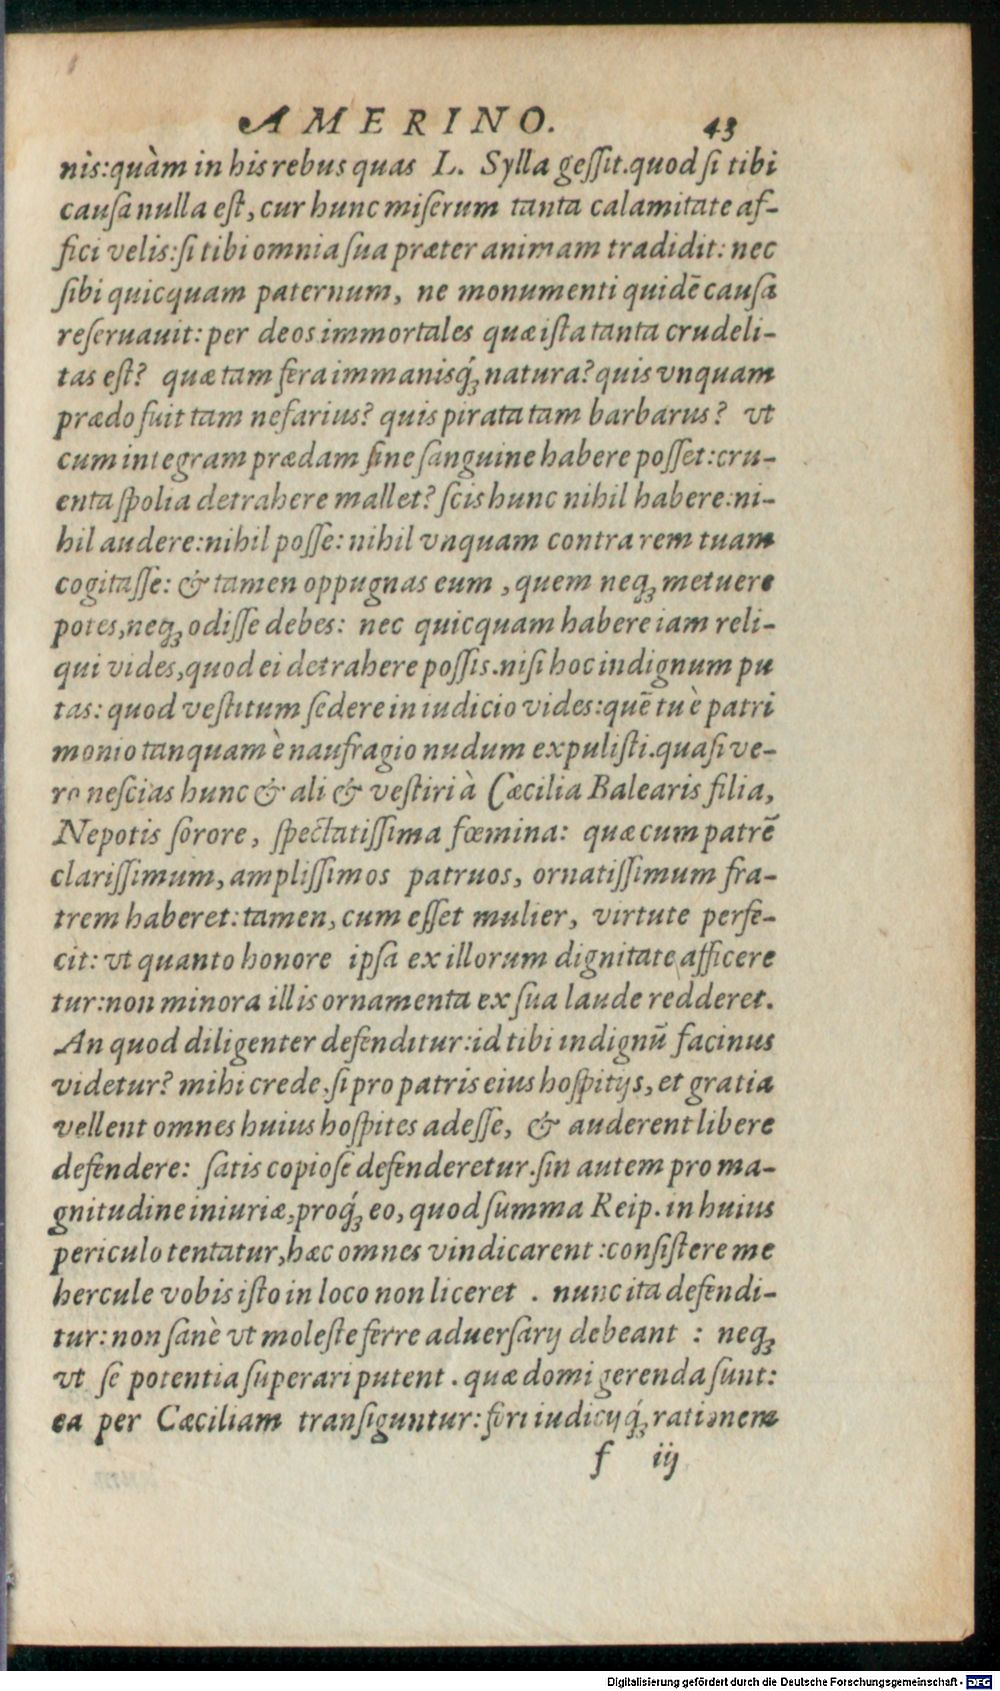 AMERINO. 43
nis:quàm in his rebus quas L. Sylla gessit.quod si tibi
causa nulla est, cur hunc miserum tanta calamitate af-
fici velis:si tibi omnia sua præter animam tradidit: nec
sibi quicquam paternum, ne monumenti quidē causa
reseruauit: per deos immortales quæ ista tanta crudeli-
tas est? quæ tam fera immanisq́; natura? quis vnquam
prædo fuit tam nefarius? quis pirata tam barbarus? vt
cum integram prædam sine sanguine habere posset:cru-
enta spolia detrahere mallet? scis hunc nihil habere:ni-
hil audere:nihil posse: nihil vnquam contra rem tuam
cogitasse: & tamen oppugnas eum , quem neq; metuere
potes,neq; odisse debes: nec quicquam habere iam reli-
qui vides,quod ei detrahere possis.nisi hoc indignum pu
tas: quod vestitum sedere in iudicio vides:quē tu è patri
monio tanquam è naufragio nudum expulisti.quasi ve-
ro nescias hunc & ali & vestiri à Cæcilia Balearis filia,
Nepotis sorore, spectatissima fœmina: quæ cum patrē
clarissimum, amplissimos patruos, ornatissimum fra-
trem haberet:tamen, cum esset mulier, virtute perfe-
cit: vt quanto honore ipsa ex illorum dignitate afficere
tur:non minora illis ornamenta ex sua laude redderet.
An quod diligenter defenditur:id tibi indignū facinus
videtur? mihi crede,si pro patris eius hospitijs, et gratia
vellent omnes huius hospites adesse, & auderent libere
defendere: satis copiose defenderetur.sin autem pro ma-
gnitudine iniuriæ,proq́; eo, quod summa Reip. in huius
periculo tentatur,hæc omnes vindicarent :consistere me
hercule vobis isto in loco non liceret . nunc ita defendi-
tur: non sanè vt moleste ferre aduersarij debeant : neq;
vt se potentia superari putent . quæ domi gerenda sunt:
ea per Cæciliam transiguntur: fori iudicijq́; rationem
f iij
Digitalisierung gefördert durch die Deutsche Forschungsgemeinschaft - DFG